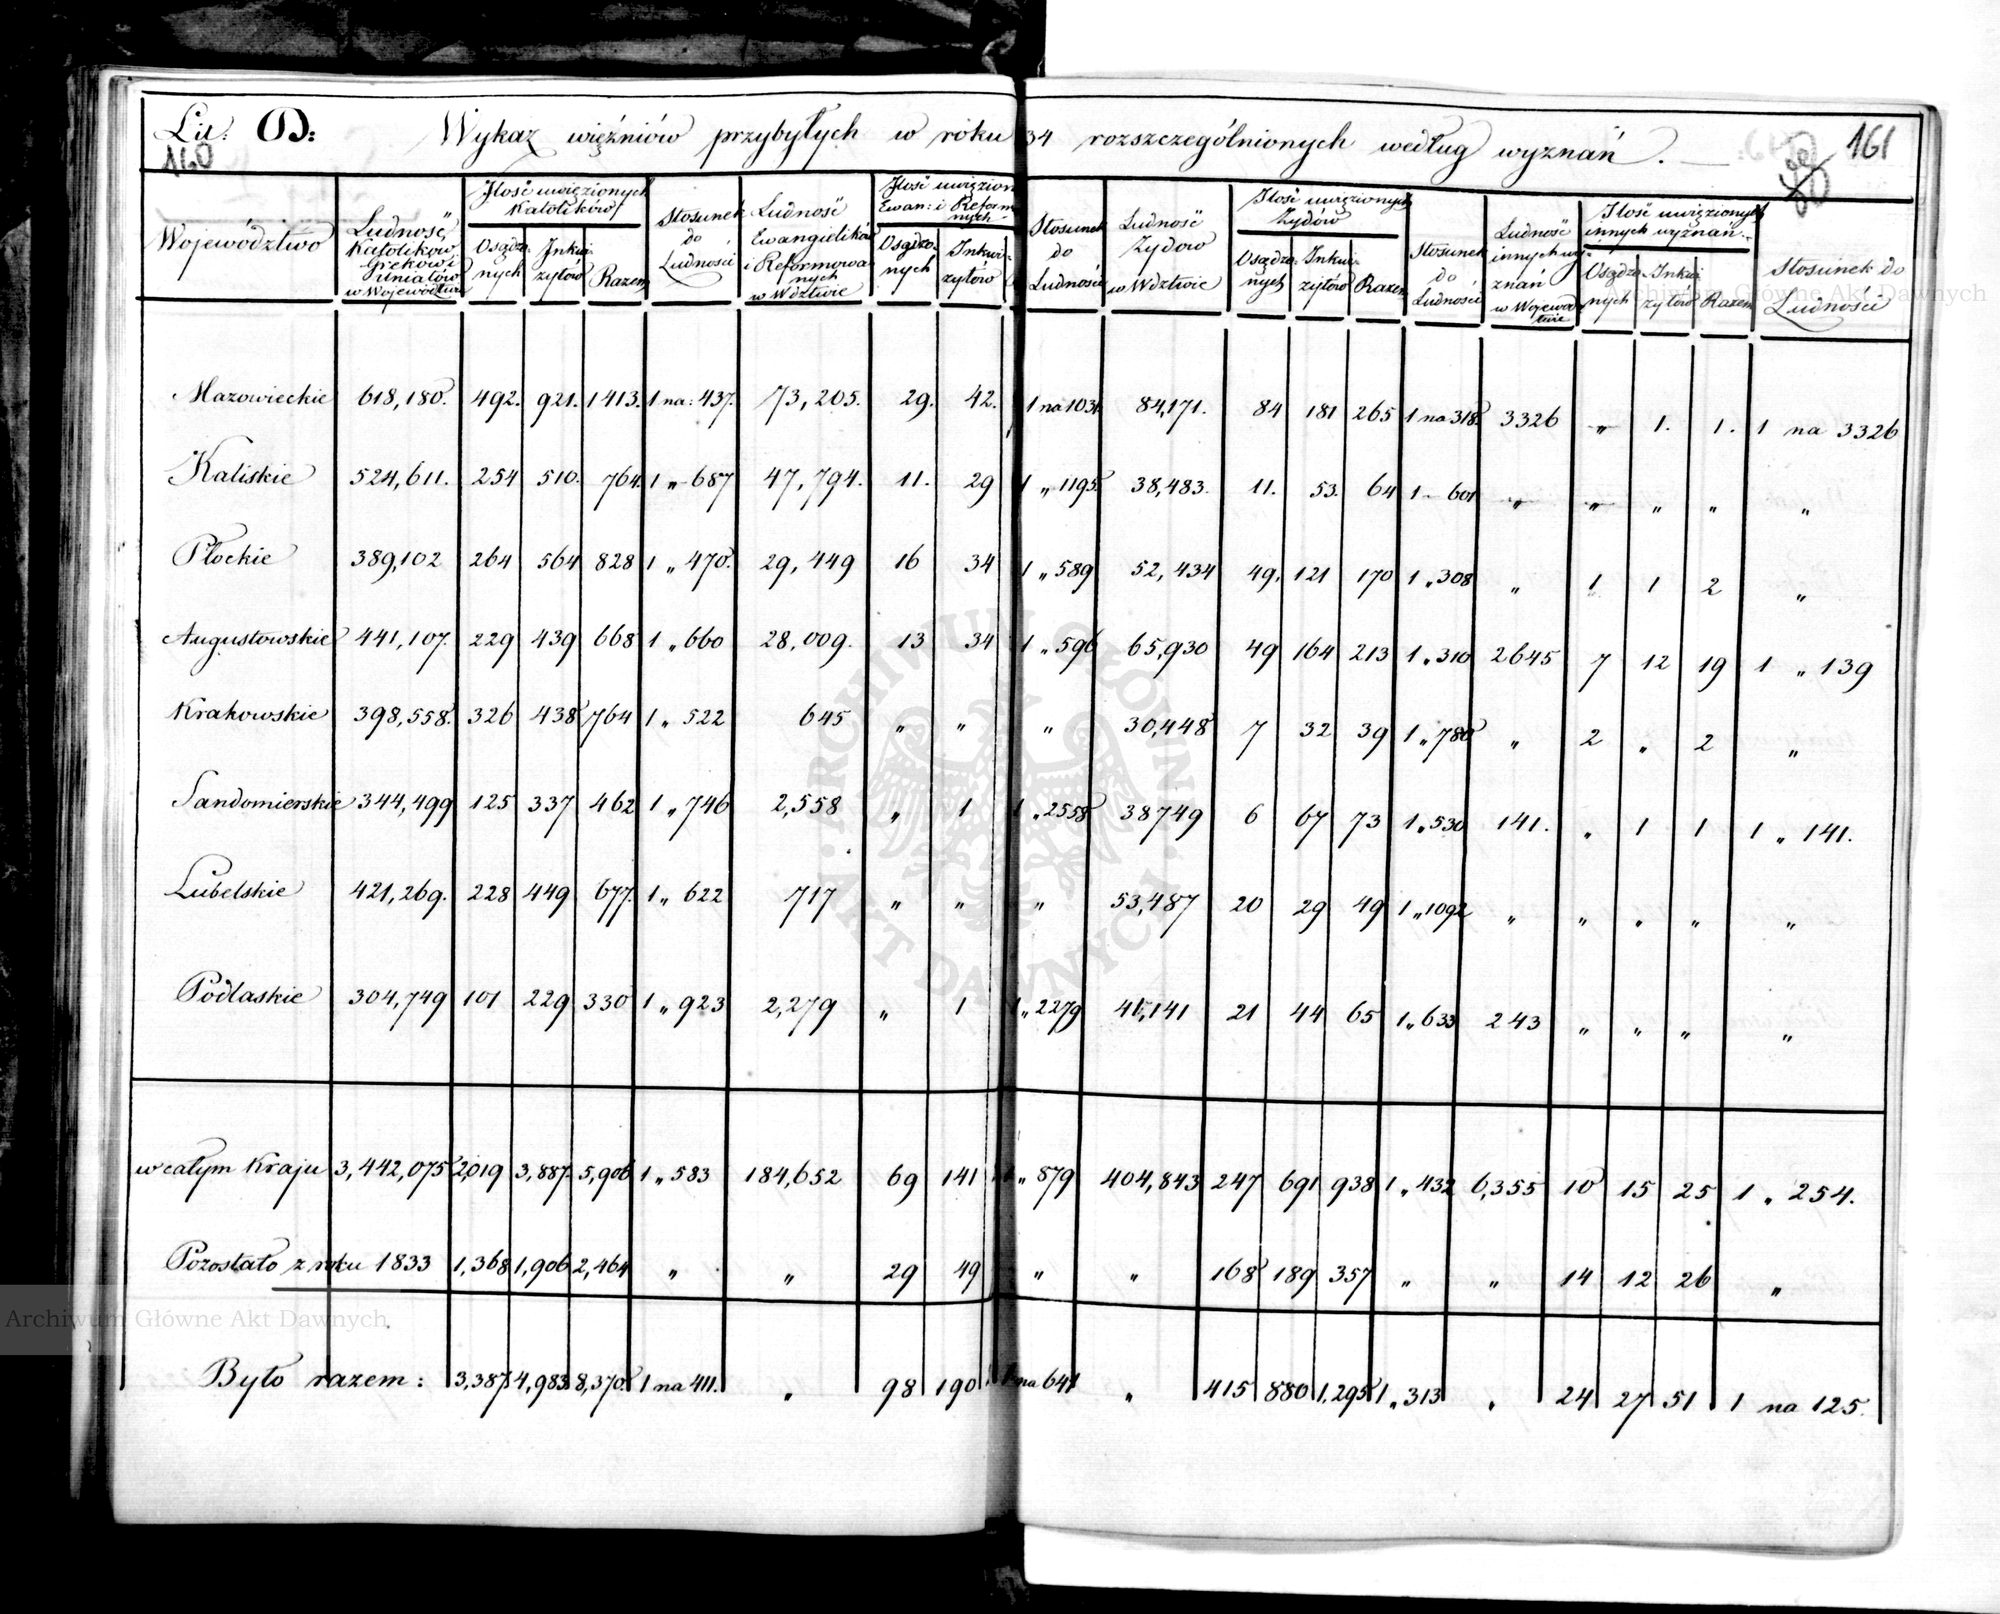 Lit: D: Wykaz więźniów przybyłych w roku 34 rozszczególnionych według wyznań.
160
161
Województwo
Ludność Katolików Greków i Uniatów w Województwie
Ilość uwięzionych Katolików
Osądzonych Inkwizytów Razem
Stosunek do Ludności
Ludność Ewangielików i Reformowanych w Wdztwie
Ilość uwięzion Ewan: i Reformnych
Osądzonych Inkwizytów
Stosunek do Ludności
Ludność Żydow w Wdztwie
Ilość uwięzionych Żydów
Osądzonych Inkwizytów Razem
Stosunek do Ludności
Ludność innych wyznań w Wojewodztwie
Ilość uwięzionych innych wyznań
Osądzonych Inkwizytów Razem
Stosunek do Ludności
Mazowieckie 618,180. 492. 921. 1413. 1 na: 437. 73,205. 29. 42. 1 na 1031. 84,171. 84 181 265 1 na 318. 3326 „ 1. 1. 1 na 3326
Kaliskie 524,611. 254 510. 764. 1 „ 687 47,794. 11. 29 1 „ 1195. 38,483. 11. 53. 64 1 - 601 „ „ „ „ „
Płockie 389,102 264 564 828 1 „ 470. 29,449 16 34 1 „ 589 52,434 49. 121 170 1 „ 308 „ 1 1 2 „
Augustowskie 441,107. 229 439 668 1 „ 660 28,009. 13 34 1 „ 596 65,930 49 164 213 1 „ 310 2645 7 12 19 1 „ 139
Krakowskie 398,558. 326 438 764 1 „ 522 645 „ „ „ 30,448 7 32 39 1 „ 780 „ 2 „ 2 „
Sandomierskie 344,499 125 337 462 1 „ 746 2,558 „ 1 1 „ 2558 38749 6 67 73 1 „ 530 141. „ 1 1 1 „ 141.
Lubelskie 421,269. 228 449 677. 1 „ 622 717 „ „ „ 53,487 20 29 49 1 „ 1092 „ „ „ „ „
Podlaskie 304,749 101 229 330 1 „ 923 2,279 „ 1 1 „ 2279 41,141 21 44 65 1 „ 633 243 „ „ „ „
w całym Kraju 3,442,075 2,019 3,887. 5,906 1 „ 583 184,652 69 141 1 „ 879 404,843 247 691 938 1 „ 432 6,355 10 15 25 1 „ 254.
Pozostało z roku 1833 1,368 1,906 2,464 „ „ 29 49 „ „ 168 189 357 „ „ 14 12 26 „
Było razem: 3,387 4,983 8,370 1 na 411. „ 98 190 1 na 641 „ 415 880 1,295 1 „ 313 „ 24 27 51 1 na 125.
Archiwum Główne Akt Dawnych
Archiwum Główne Akt Dawnych
ARCHIWUM GŁÓWNE AKT DAWNYCH